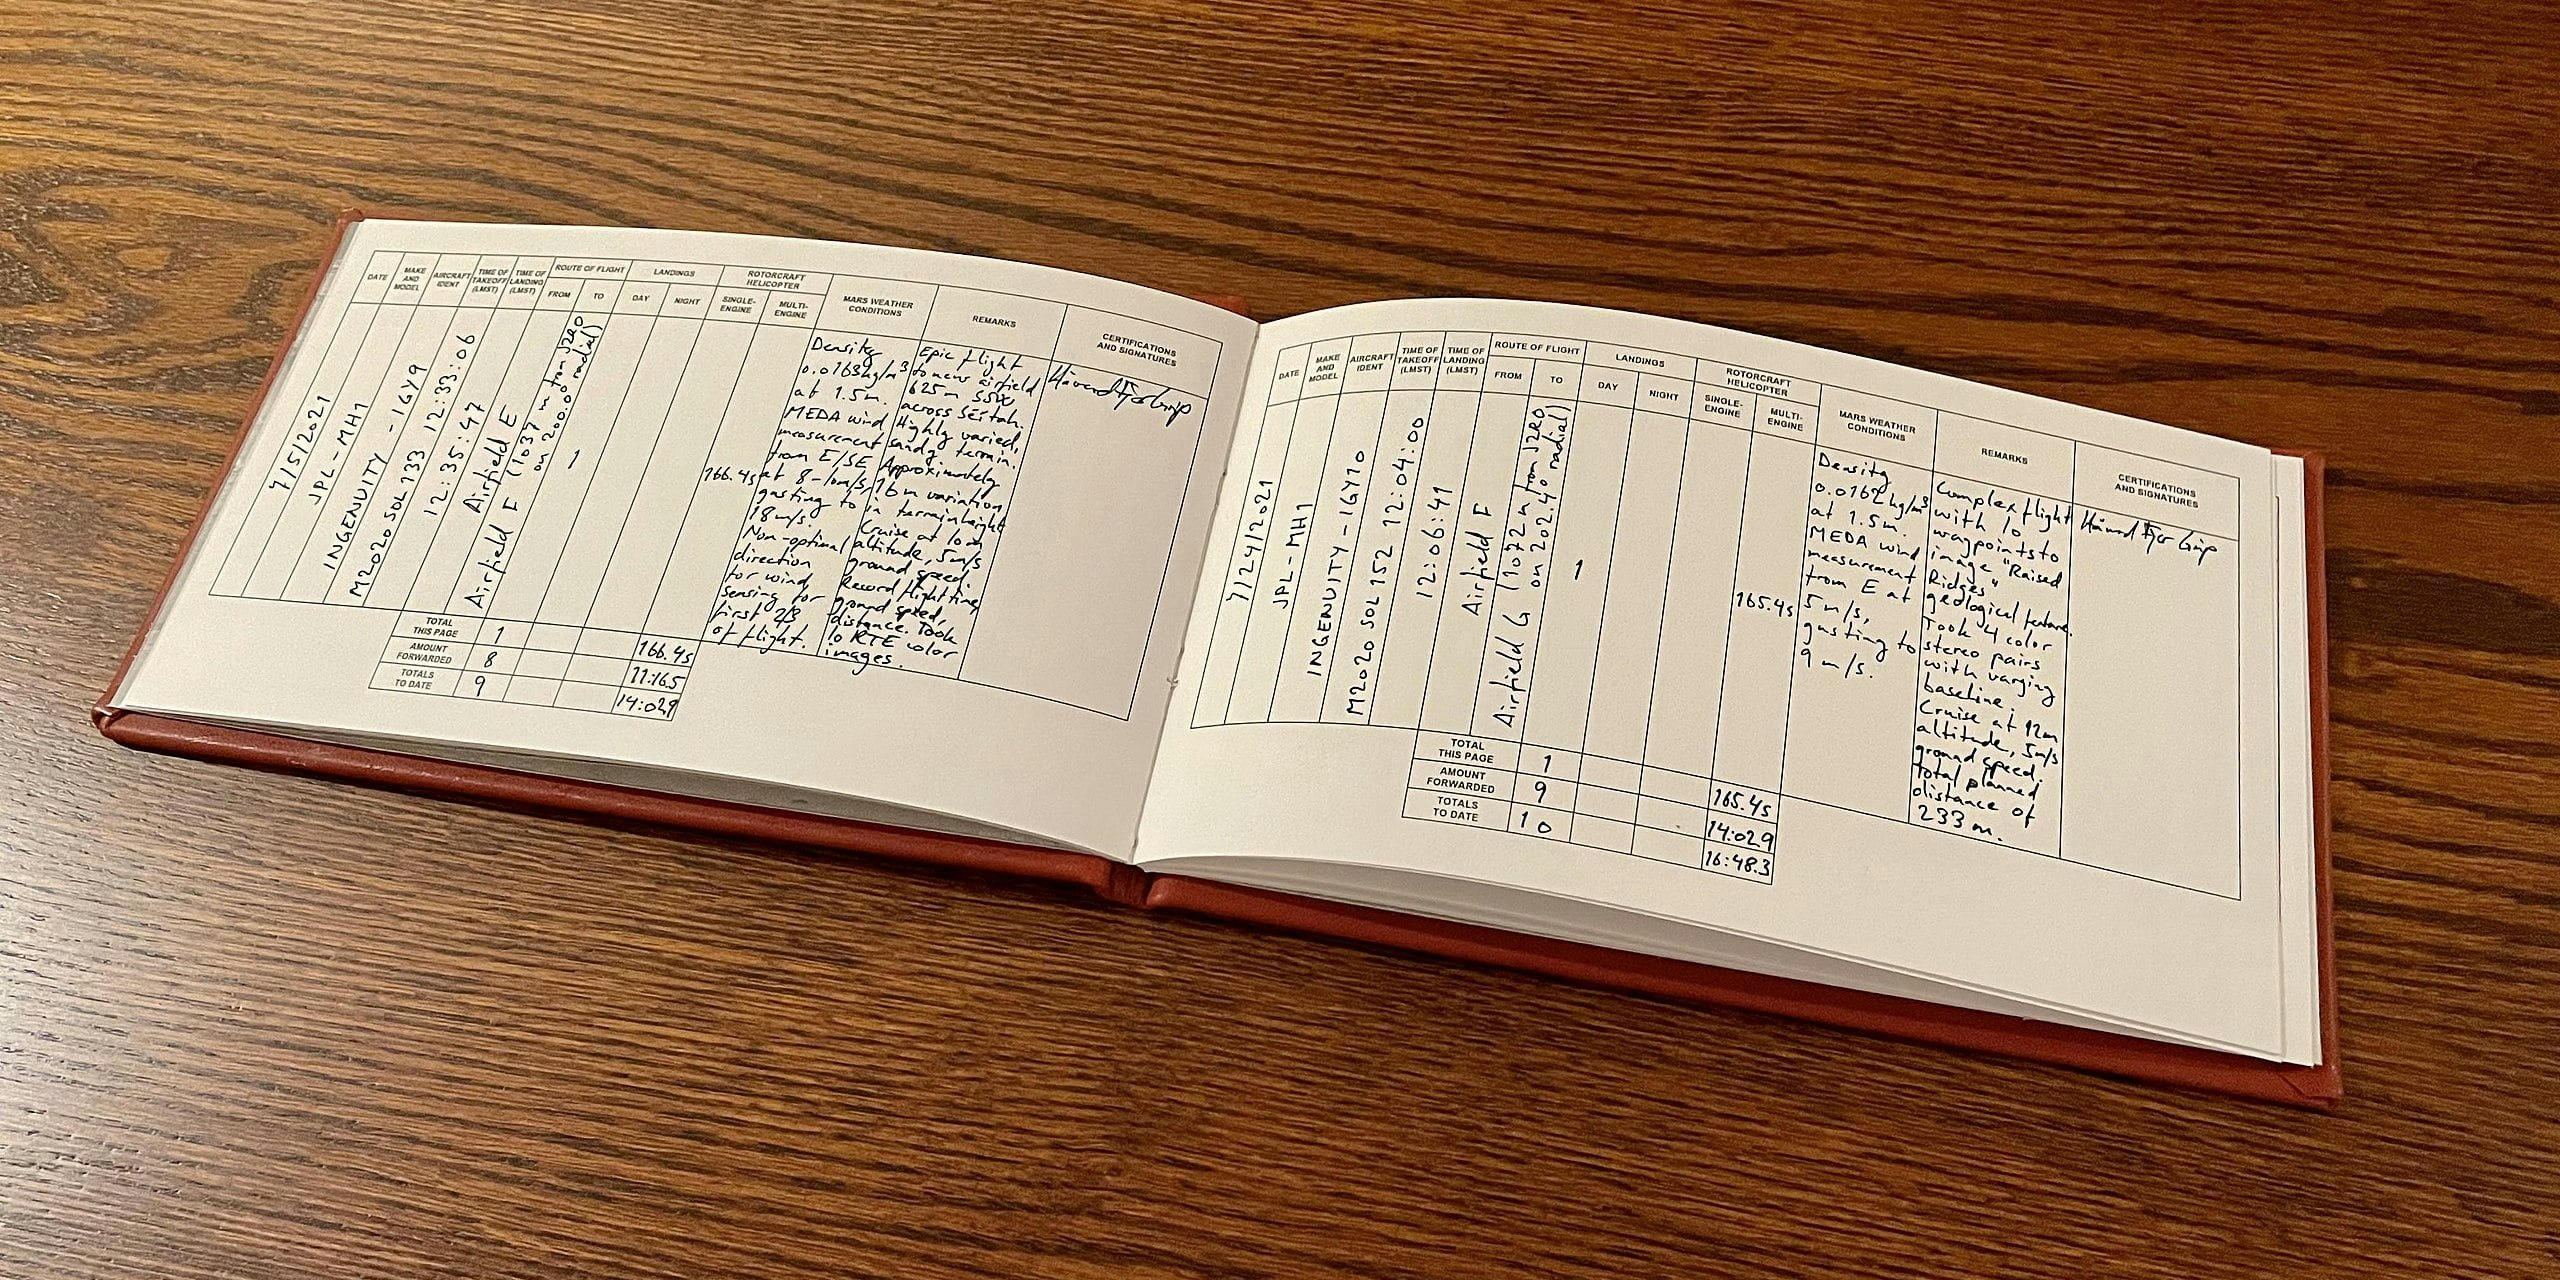 DATE
MAKE
AND
MODEL
AIRCRAFT
IDENT
TIME OF
TAKEOFF
(LMST)
TIME OF
LANDING
(LMST)
ROUTE OF FLIGHT
FROM
TO
LANDINGS
DAY
NIGHT
ROTORCRAFT
HELICOPTER
SINGLE-
ENGINE
MULTI-
ENGINE
MARS WEATHER
CONDITIONS
REMARKS
CERTIFICATIONS
AND SIGNATURES
7/5/2021
JPL-MH1
INGENUITY - IGY9
M2020 SOL 133 12:33:06
12:35:47
Airfield E
Airfield F (1037 m from JZRO
on 200.0° radial)
1
166.4s
Density
0.0163kg/m³
at 1.5m.
MEDA wind
measurement
from E/SE
at 8-10m/s,
gusting to
18m/s.
Non-optimal
direction
for wind
sensing for
first 2/3
of flight.
Epic flight
to new airfield
625m SSW
across Séítah.
Highly varied,
sandy terrain.
Approximately
16m variation
in terrain height
Cruise at 10m
altitude, 5m/s
ground speed.
Record flight time,
ground speed,
distance. Took
10 RTE color
images.
Håvard Fjær Grip
TOTAL
THIS PAGE
1
166.4s
AMOUNT
FORWARDED
8
11:16.5
TOTALS
TO DATE
9
14:02.9
DATE
MAKE
AND
MODEL
AIRCRAFT
IDENT
TIME OF
TAKEOFF
(LMST)
TIME OF
LANDING
(LMST)
ROUTE OF FLIGHT
FROM
TO
LANDINGS
DAY
NIGHT
ROTORCRAFT
HELICOPTER
SINGLE-
ENGINE
MULTI-
ENGINE
MARS WEATHER
CONDITIONS
REMARKS
CERTIFICATIONS
AND SIGNATURES
7/24/2021
JPL-MH1
INGENUITY - IGY10
M2020 SOL 152 12:04:00
12:06:41
Airfield F
Airfield G (1072 m from JZRO
on 202.4° radial)
1
165.4s
Density
0.0162kg/m³
at 1.5m.
MEDA wind
measurement
from E at
5m/s,
gusting to
9m/s.
Complex flight
with 10
waypoints to
image "Raised
Ridges"
geological feature.
Took 4 color
stereo pairs
with varying
baseline.
Cruise at 12m
altitude, 5m/s
ground speed.
Total planned
distance of
233m.
Håvard Fjær Grip
TOTAL
THIS PAGE
1
165.4s
AMOUNT
FORWARDED
9
14:02.9
TOTALS
TO DATE
10
16:48.3